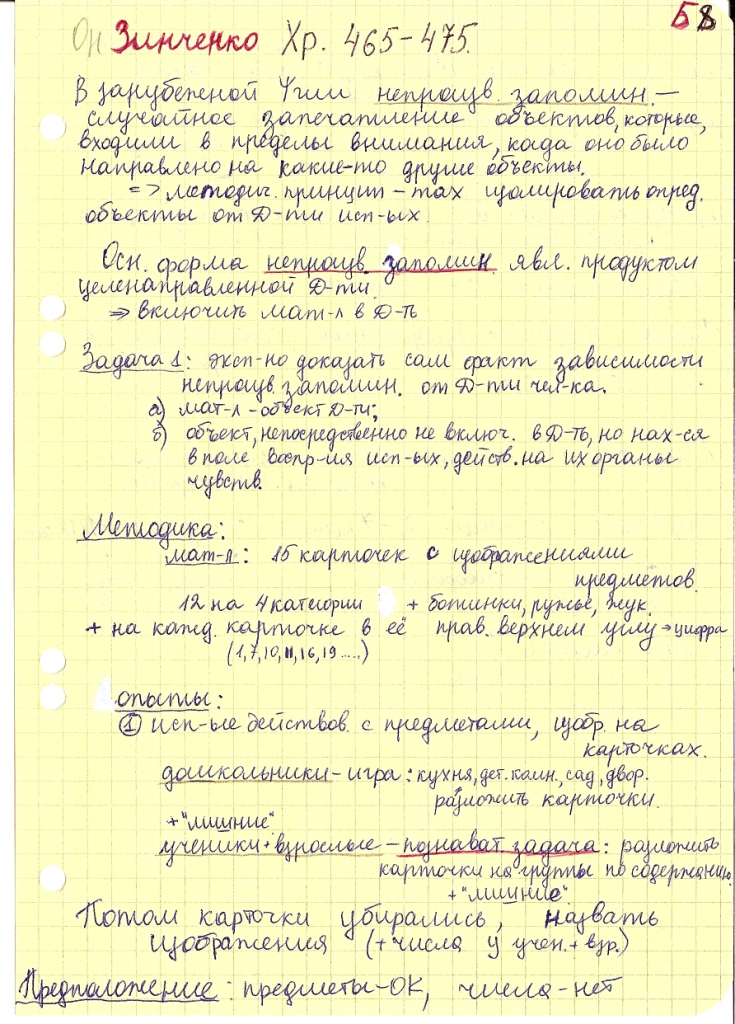 58
Он Зинченко Хр. 465-475.
В зарубежной Ψгии непроизв. запомин. —
случайное запечатление объектов, которые,
входили в пределы внимания, когда оно было
направлено на какие-то другие объекты.
=> методич. принцип - max изолировать опред.
объекты от Д-ти исп-ых.
Осн. форма непроизв. запомин. явл. продуктом
целенаправленной Д-ти.
=> включить мат-л в Д-ть
Задача 1: эксп-но доказать сам факт зависимости
непроизв. запомин. от Д-ти чел-ка.
а) мат-л - объект Д-ти;
б) объект, непосредственно не включ. в Д-ть, но нах-ся
в поле воспр-ия исп-ых, действ. на их органы
чувств.
Методика:
мат-л: 15 карточек с изображениями
предметов.
12 на 4 категории + ботинки, ружье, жук.
+ на кажд. карточке в её прав. верхнем углу → цифра
(1, 7, 10, 11, 16, 19 .....)
опыты:
① исп-ые действов. с предметами, изобр. на
карточках.
дошкольники - игра: кухня, дет. комн., сад, двор.
разложить карточки.
+ "лишние"
ученики + взрослые - познават. задача: разложить
карточки на группы по содержанию.
+ "лишние"
Потом карточки убирались, назвать
изображения (+ числа у учен. + взр.)
Предположение: предметы - ОК, числа - нет